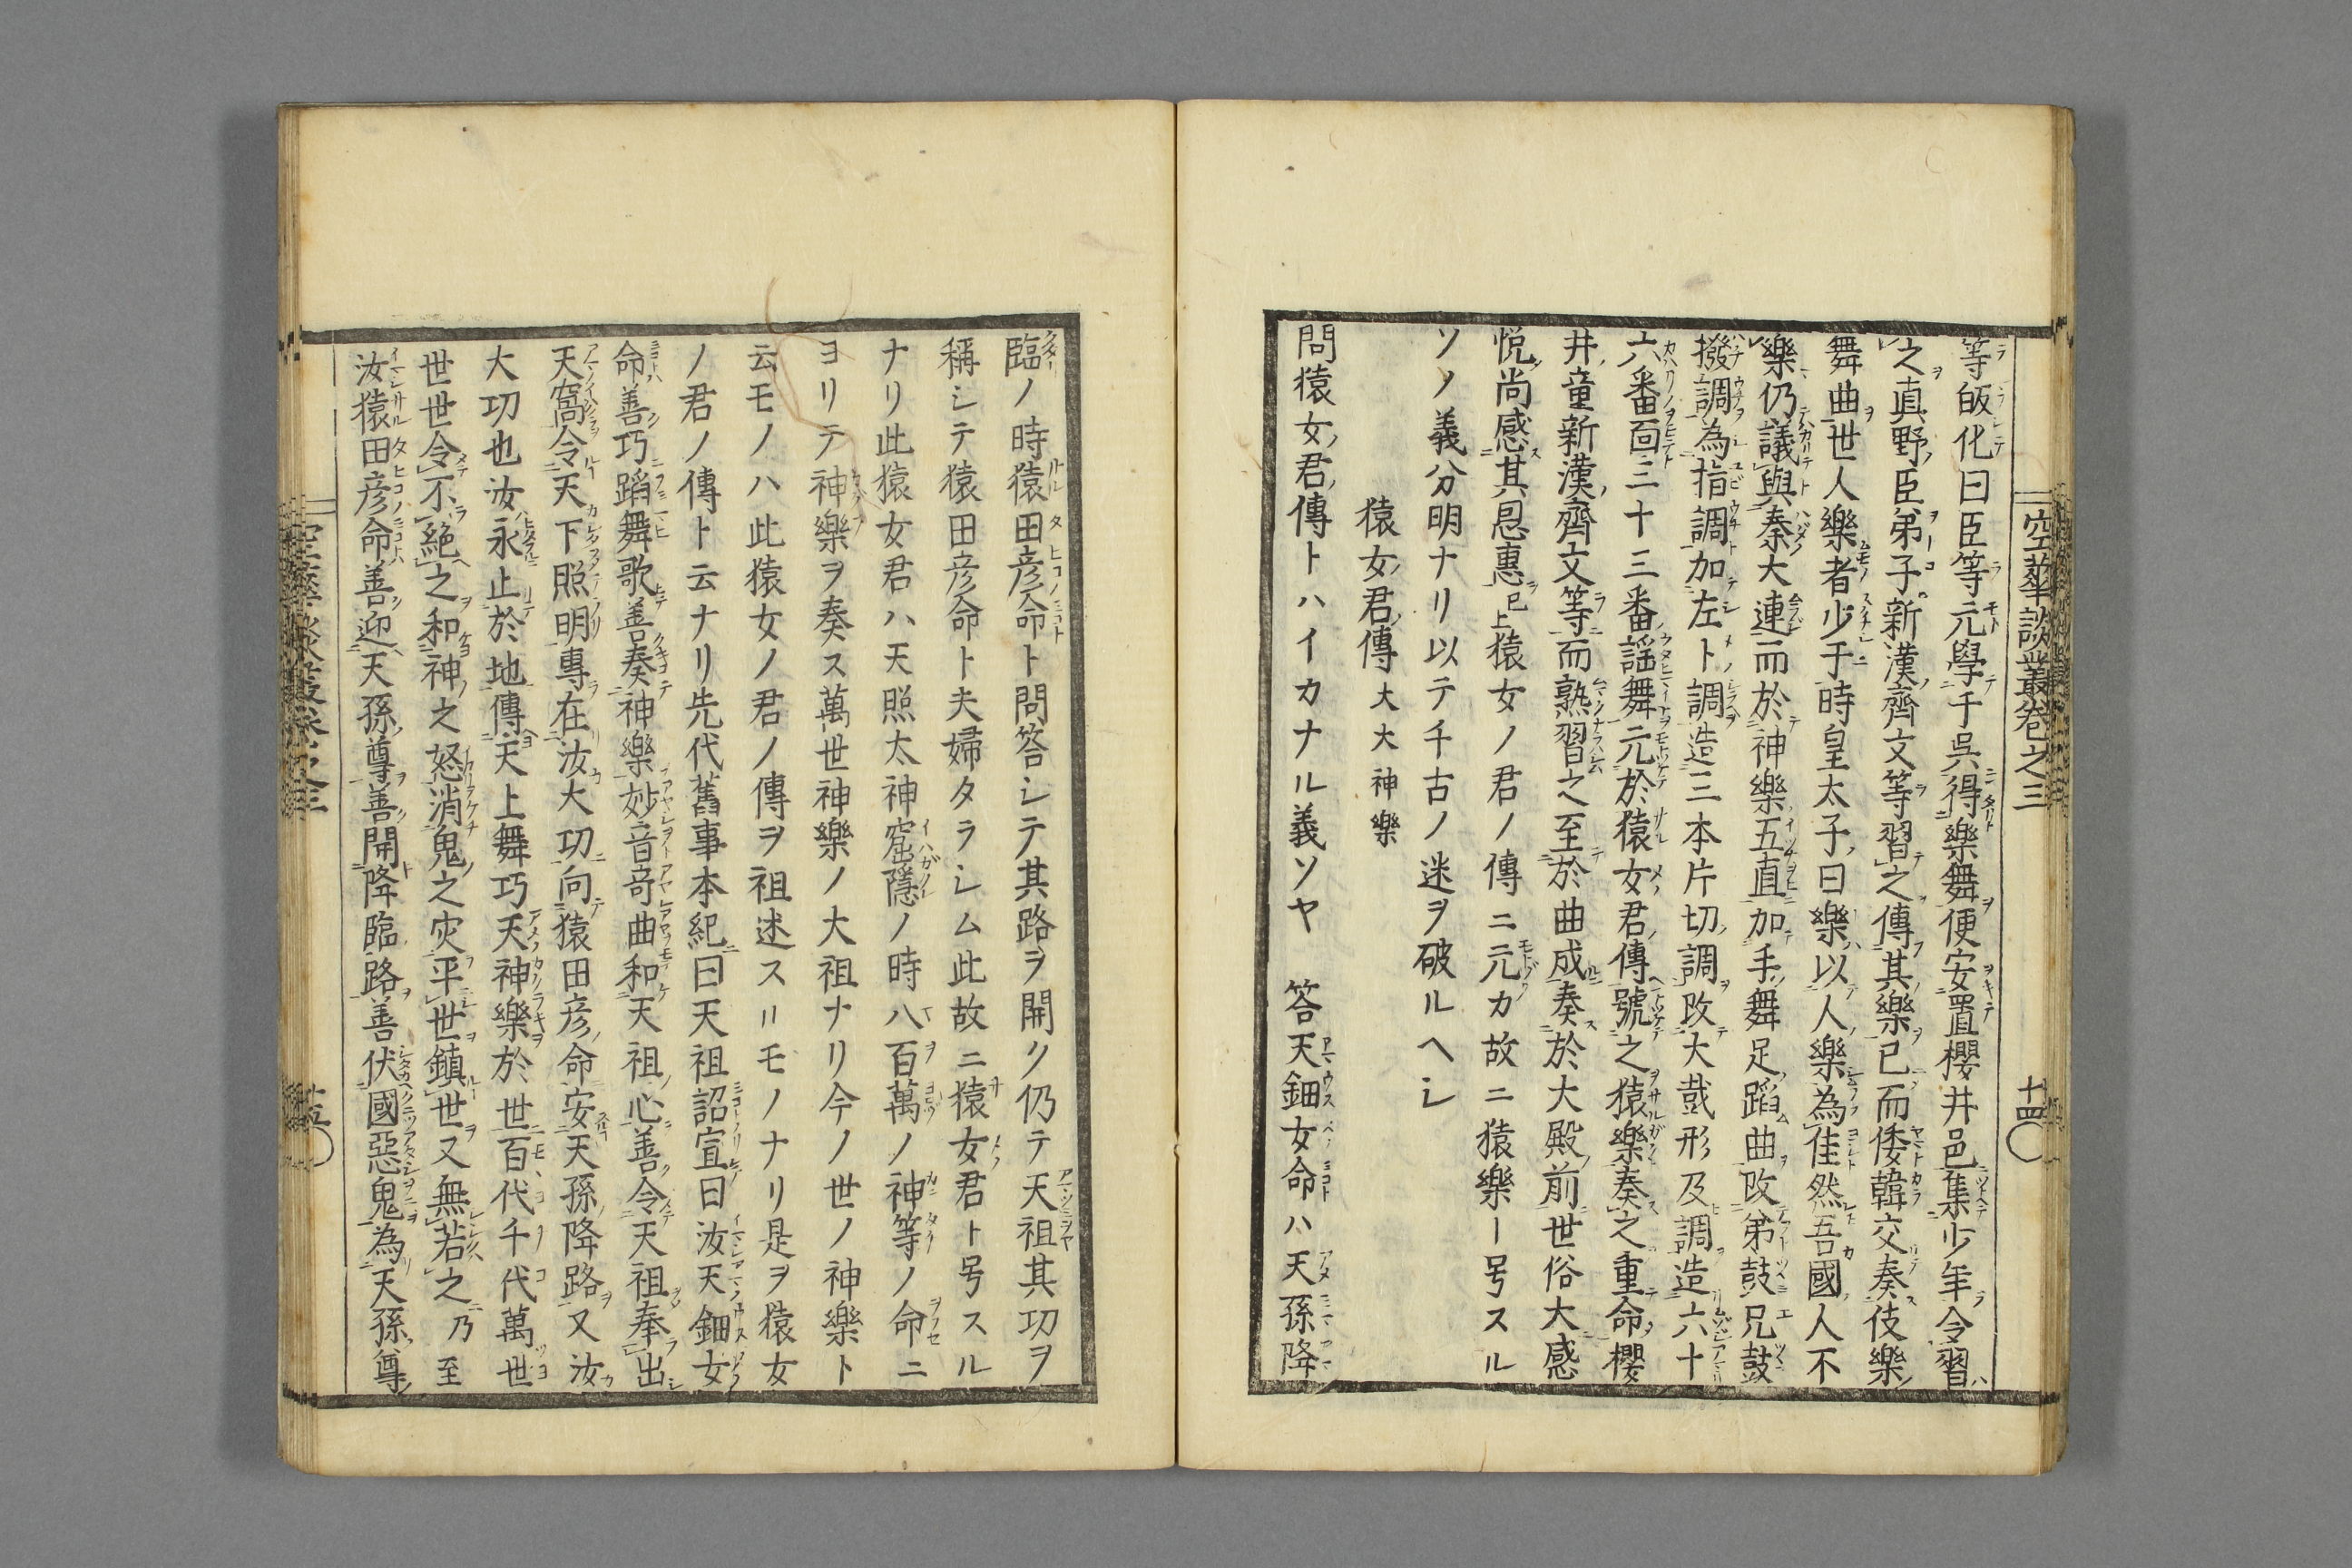 空華談叢卷之三
十四
等皈化曰臣等元學于呉得樂舞便安置櫻井邑集少年令習
之真野臣弟子新漢齊文等習之傳其樂已而倭韓交奏伎樂
舞曲世人樂者少于時皇太子曰樂以人樂為佳然吾國人不
樂仍議與秦大連而於神樂五直加手舞足蹈曲改弟鼓兄鼓
撥調為指調加左ト調造三本片切調改大哉形及調造六十
六番面三十三番謡舞元於猿女君傳號之猿樂奏之重命櫻
井童新漢齊文等而熟習之至於曲成奏於大殿前世俗大感
悦尚感其恩惠已上猿女ノ君ノ傳ニ元カ故ニ猿樂ー号スル
ソノ義分明ナリ以テ千古ノ迷ヲ破ルヘシ
猿女君傳大大神樂
問猿女君傳トハイカナル義ソヤ 答天鈿女命ハ天孫降
臨ノ時猿田彦命ト問答シテ其路ヲ開ク仍テ天祖其功ヲ
稱シテ猿田彦命ト夫婦タラシム此故ニ猿女君ト号スル
ナリ此猿女君ハ天照太神窟隱ノ時八百萬ノ神等ノ命ニ
ヨリテ神樂ヲ奏ス萬世神樂ノ大祖ナリ今ノ世ノ神樂ト
云モノハ此猿女ノ君ノ傳ヲ祖述スルモノナリ是ヲ猿女
ノ君ノ傳ト云ナリ先代舊事本紀曰天祖詔宣曰汝天鈿女
命善巧蹈舞歌善奏神樂妙音竒曲和天祖心善令天祖奉出
天窩令天下照明專在汝大功向猿田彦命安天孫降路又汝
大功也汝永止於地傳天上舞巧天神樂於世百代千代萬世
世世令不絕之和神之怒消鬼之灾平世鎮世又無若之乃至
汝猿田彦命善迎天孫尊善開降臨路善伏國惡鬼為天孫尊
空華談叢卷之三
十五